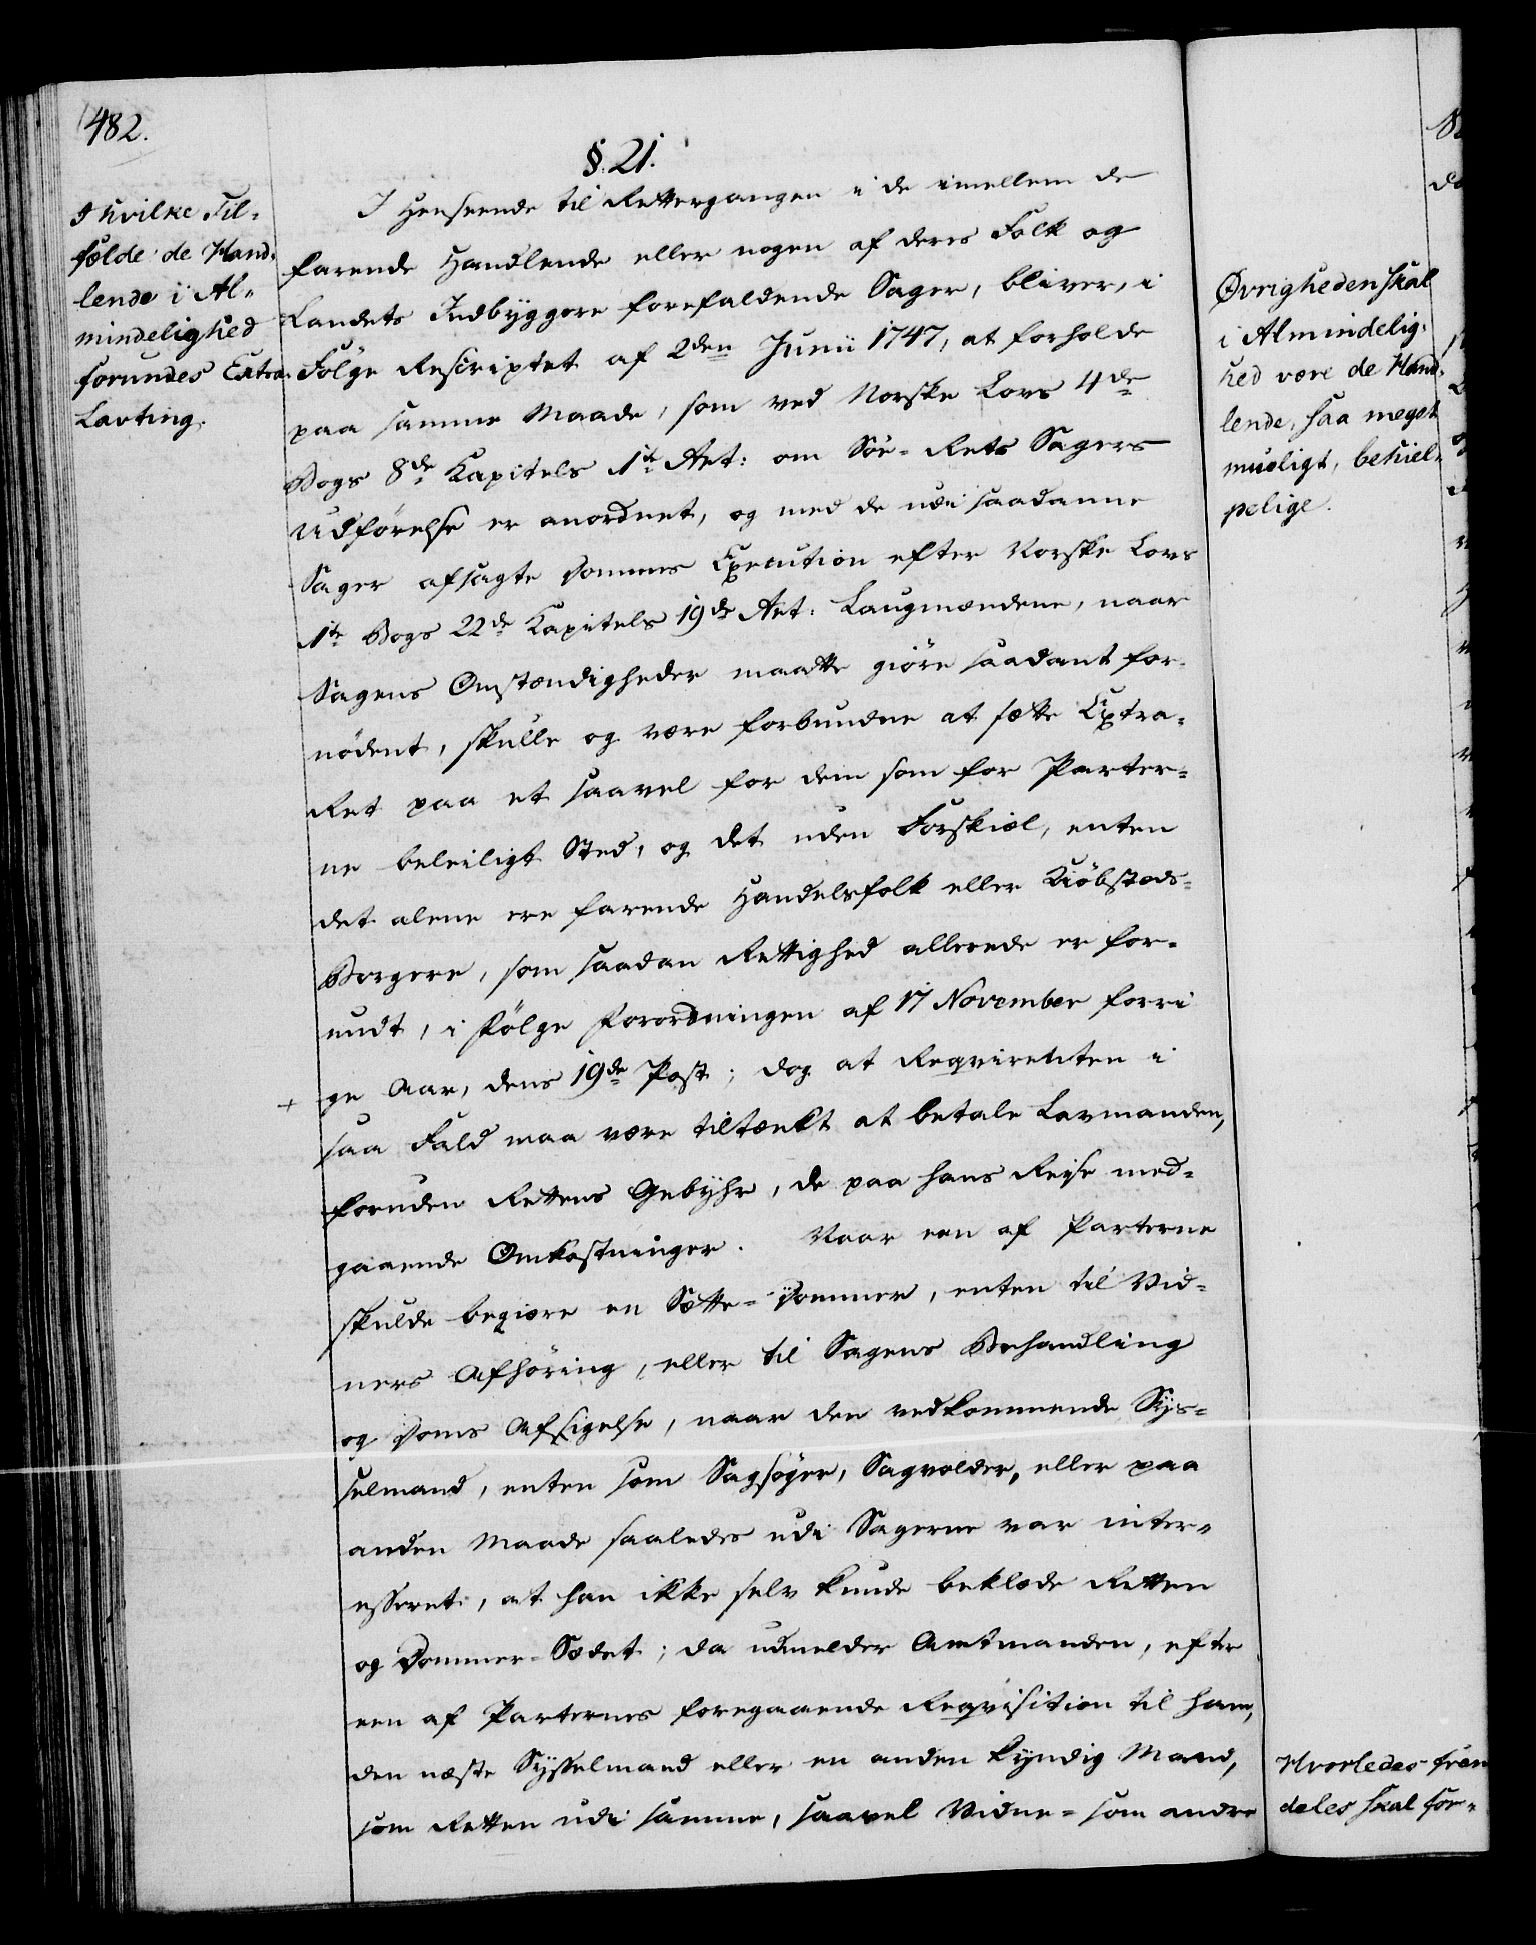 482.
§. 21.
I hvilke Til-
fælde de Hand-
lende i Al-
mindelighed
forundes Extra-
Lavting.
I Henseende til Rettergangen i de imellem de
farende Handlende eller nogen af deres Folk og
Landets Indbyggere forefaldende Sager, bliver, i
Følge Rescriptet af 2den Junii 1747, at forholde
paa samme Maade, som ved Norske Lovs 4de
Bogs 8de Kapitels 1te Art: om Söe-Rets Sagers
Udførelse er anordnet, og med de udi saadanne
Sager afsagte Dommes Execution efter Norske Lovs
1te Bogs 22de Kapitels 19de Art: Laugmændene, naar
Sagens Omstændigheder maatte giöre saadant for-
nödent, skulle og være forbundne at sætte Extra-
Ret paa et saavel for dem som for Parter-
ne beleiligt Sted, og det uden Forskiæl, enten
det alene ere farende Handelsfolk eller Kiöbstæds-
Borgere, som saadan Rettighed allerede er for-
undt, i Følge Forordningen af 17 November forri
ge Aar, dens 19de Post; dog at Reqvirenten i
+
saa Fald maa være tiltænkt at betale Lavmanden,
foruden Rettens Gebyhr, de paa hans Reise med-
gaaende Omkostninger. Naar een af Parterne
skulde begiære en Sætte-Dommer, enten til Vid-
ners Afhöring, eller til Sagens Behandling
og Doms Afsigelse, naar den vedkommende Sys-
selmand, enten som Sagsöger, Sagvolder, eller paa
anden Maade saaledes udi Sagerne var inter-
esseret, at han ikke selv kunde beklæde Retten
og Dommer-Sædet; da udmelder Amtmanden, efter
een af Parternes foregaaende Reqvisition til ham,
den næste Sysselmand eller en anden kyndig Mand,
som Retten udi samme, saavel Vidne- som andre
Øvrigheden skal
i Almindelig-
hed være de Hand-
lende, saa meget
mueligt, behiel-
pelige.
Hvorledes frem
deles skal for-